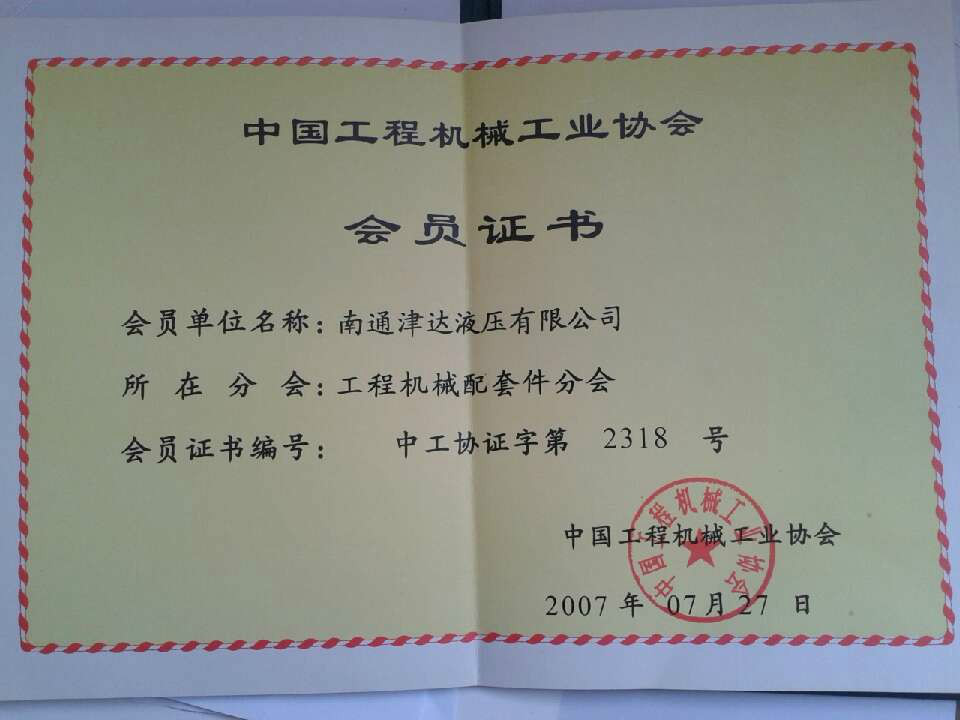 中国工程机械工业协会
会员证书
会员单位名称：南通津达液压有限公司
所在分会：工程机械配套件分会
会员证书编号： 中工协证字第 2318 号
中国工程机械工业协会
中国工程机械工业协会
2007 年 07 月 27 日